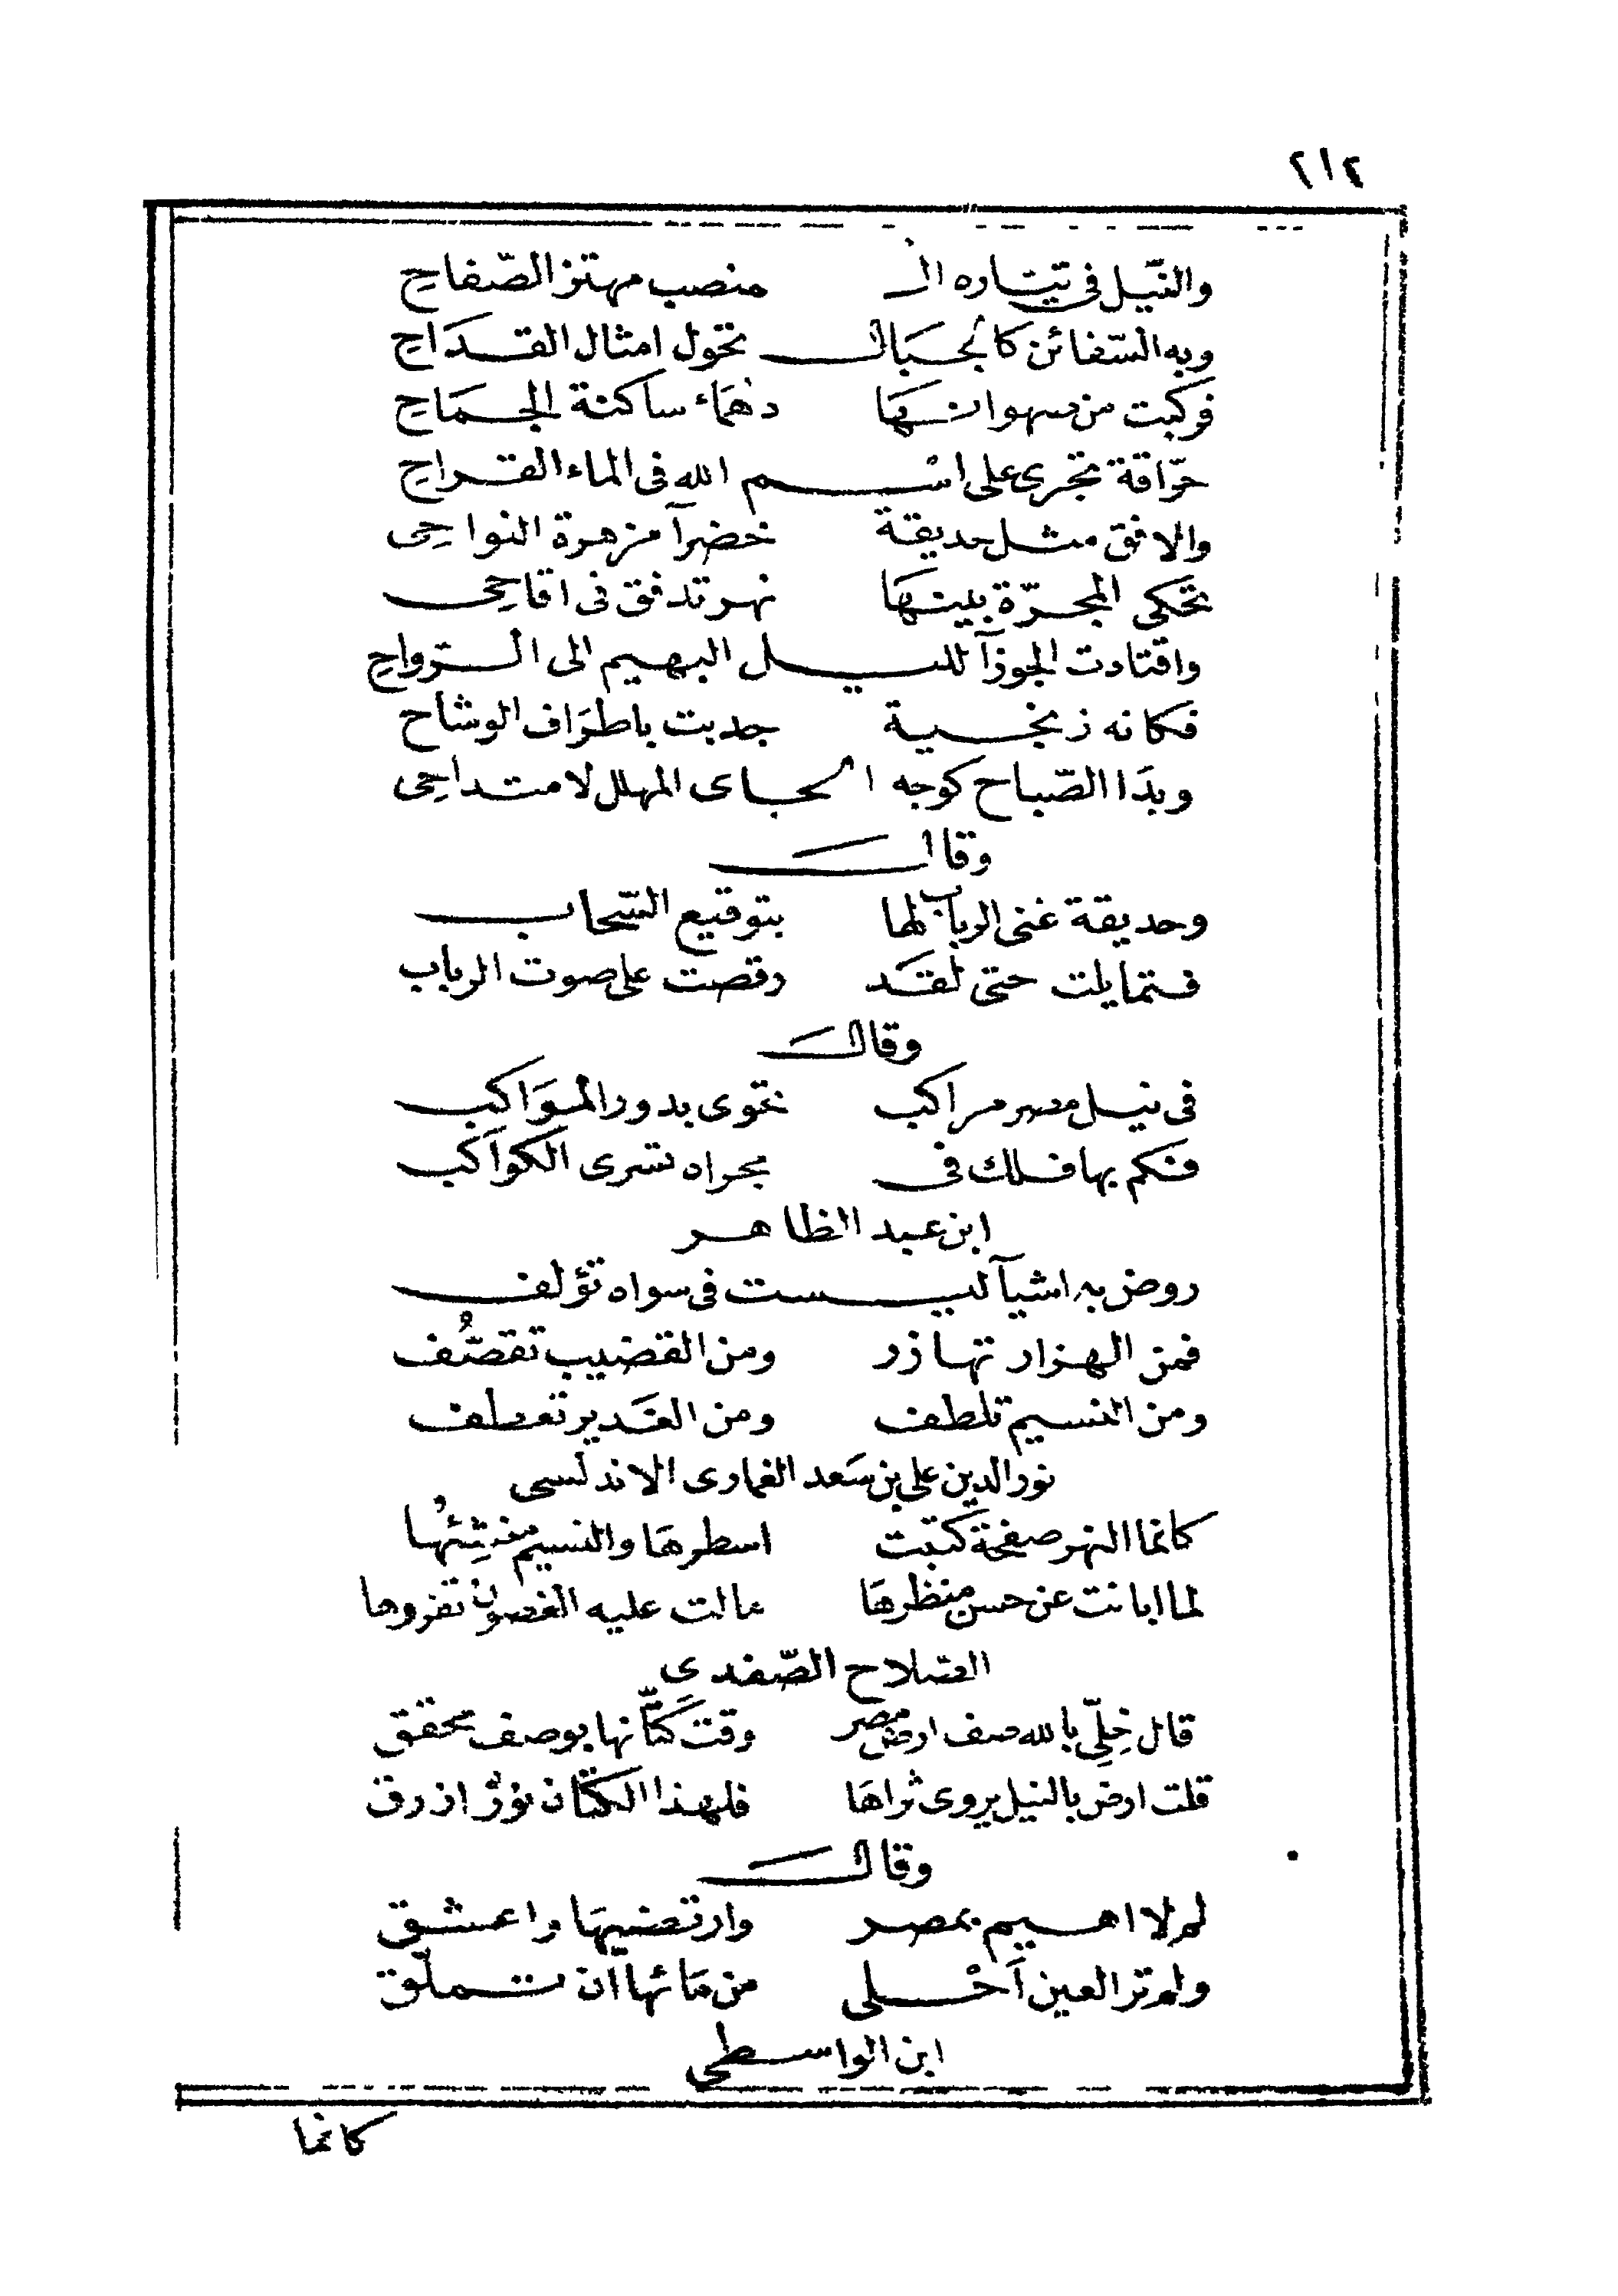 ٢١٤
والنّيل فى تيّاره الـ منصب مهتز الصّفاح
وبه السّفائن كالجبال تخول امثال القداح
فركبت من صهواتها دهماء ساكنة الجماح
حرّاقة تجرى على اسم الله فى الماء القراح
والافق مثل حديقة خضرآ مزهرة النواحى
تحكى المجرّة بينها نهر تدفق فى اقاحى
واقتادت الجوزآ لليل البهيم الى الرواح
فكانه زنجية جدبت باطراف الوشاح
وبدا الصّباح كوجه الـحاى المهلل لامتداحى
وقال
وحديقة غنى الرباب لها بتوقيع السّحاب
فتمايلت حتى لقد رقصت على صوت الرباب
وقال
فى نيل مصر مراكب تحوى بدور المواكب
فكم بها فلك فى مجراه تسرى الكواكب
ابن عبد الظاهر
روض به اشيآ ليست فى سواه تؤلف
فمن الهزار تهازر ومن القضيب تقصّف
ومن النسيم تلطف ومن الغدير تعطف
نور الدين على بن سعد الغمارى الاندلسى
كانما النهر صفحة كتبت اسطرها والنسيم منشئها
لما ابانت عن حسن منظرها مالت عليه الغصون تقروها
الصلاح الصّفدى
قال خِلّى بالله صف ارض مصر وقت كتّانها بوصف محقق
قلت ارض بالنيل يروى ثراها فلهذا الكتّان نوّر ازرق
وقال
لم لا اهيم بمصر وارتضيها واعشق
ولم تر العين اَحْلى من مائها ان تملّق
ابن الواسطى
كانما